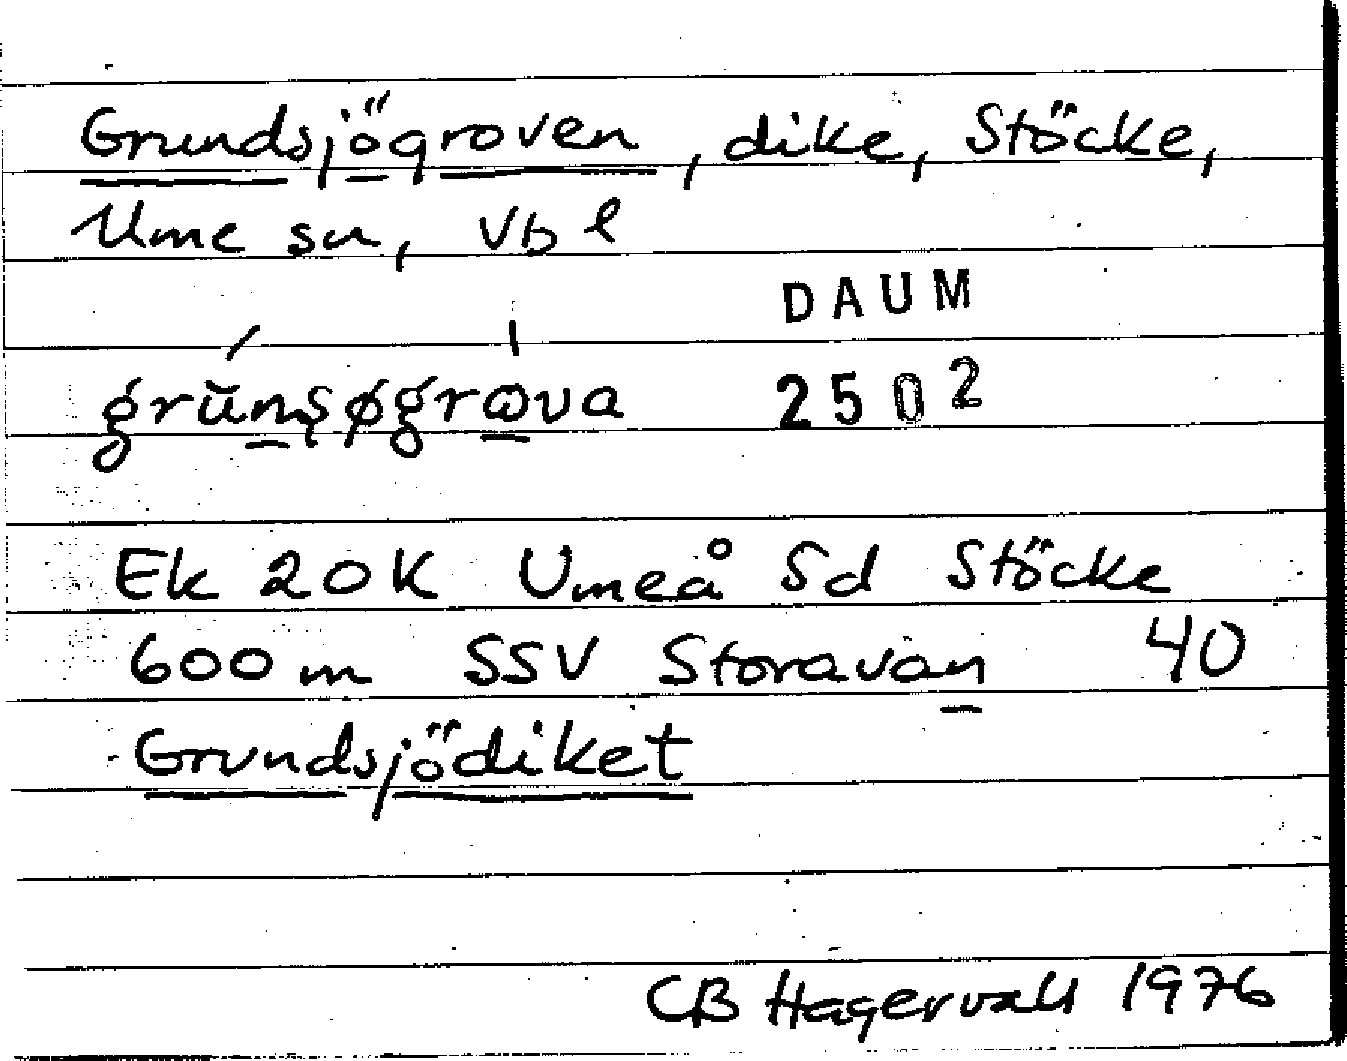 Grundsjögroven, dike, Stöcke,
Ume sn, Vb l
DAUM
2502
Ek 20K Umeå Sd Stöcke
600m SSV Storavan 40
Grundsjödiket
CB Hagervall 1976